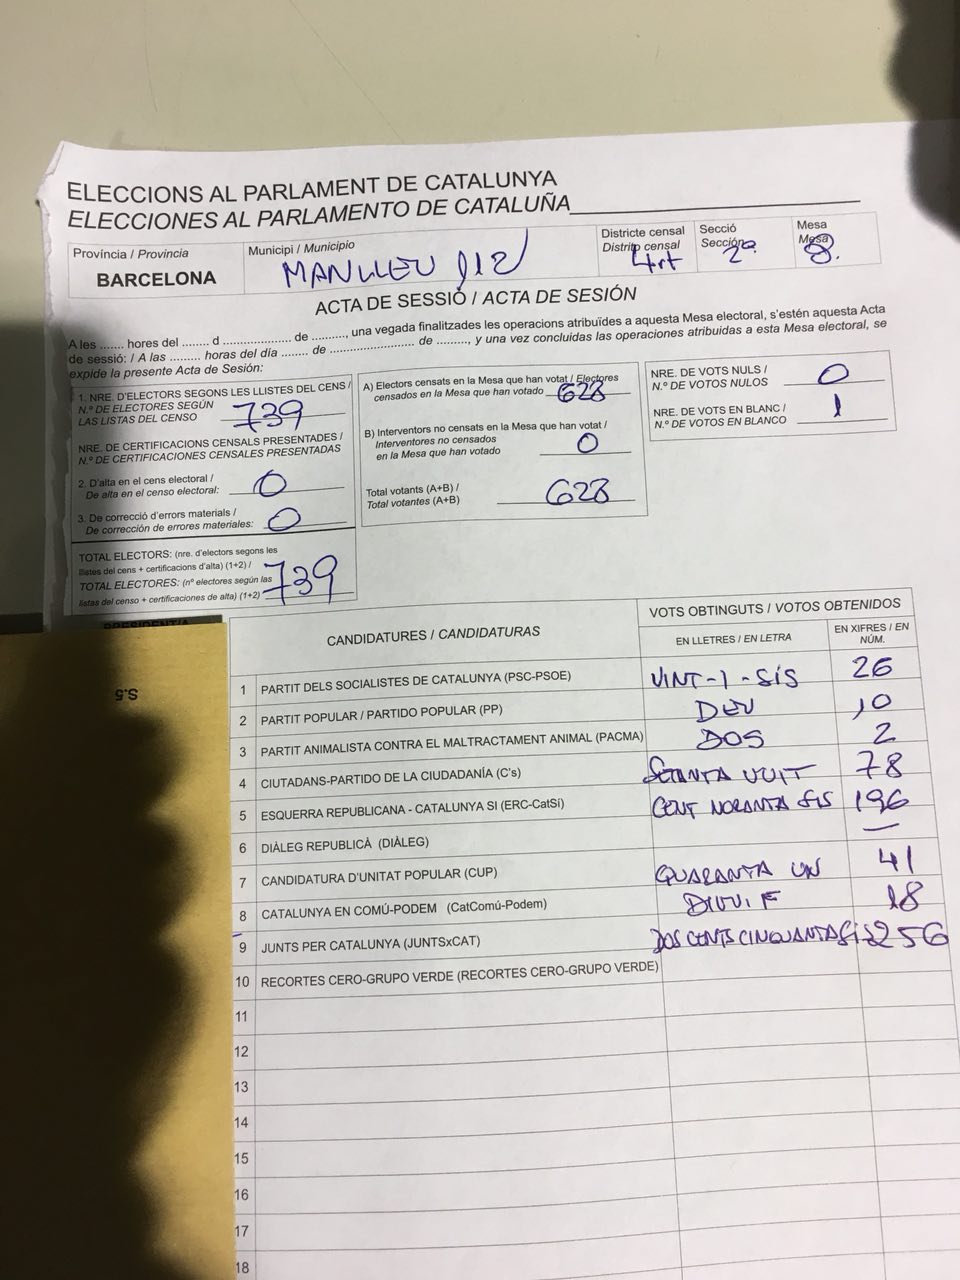 ELECCIONS AL PARLAMENT DE CATALUNYA
ELECCIONES AL PARLAMENTO DE CATALUÑA
Província / Provincia
BARCELONA
Municipi / Municipio
MANLLEU 112
Districte censal
Distrito censal
4rt
Secció
Sección
2ª
Mesa
Mesa
8.
ACTA DE SESSIÓ / ACTA DE SESIÓN
A les ....... hores del ....... d .................... de .........., una vegada finalitzades les operacions atribuïdes a aquesta Mesa electoral, s'estén aquesta Acta
de sessió: / A las ......... horas del día ........ de ......................... de ........., y una vez concluidas las operaciones atribuidas a esta Mesa electoral, se
expide la presente Acta de Sesión:
1. NRE. D'ELECTORS SEGONS LES LLISTES DEL CENS /
N.º DE ELECTORES SEGÚN
LAS LISTAS DEL CENSO 739
NRE. DE CERTIFICACIONS CENSALS PRESENTADES /
N.º DE CERTIFICACIONES CENSALES PRESENTADAS
2. D'alta en el cens electoral /
De alta en el censo electoral: 0
3. De correcció d'errors materials /
De corrección de errores materiales: 0
TOTAL ELECTORS: (nre. d'electors segons les
llistes del cens + certificacions d'alta) (1+2) /
TOTAL ELECTORES: (nº electores según las
listas del censo + certificaciones de alta) (1+2) 739
A) Electors censats en la Mesa que han votat / Electores
censados en la Mesa que han votado 628
B) Interventors no censats en la Mesa que han votat /
Interventores no censados
en la Mesa que han votado 0
Total votants (A+B) /
Total votantes (A+B) 628
NRE. DE VOTS NULS /
N.º DE VOTOS NULOS 0
NRE. DE VOTS EN BLANC /
N.º DE VOTOS EN BLANCO 1
PRESIDENT/A
S.5
CANDIDATURES / CANDIDATURAS
VOTS OBTINGUTS / VOTOS OBTENIDOS
EN LLETRES / EN LETRA
EN XIFRES / EN
NÚM.
1 PARTIT DELS SOCIALISTES DE CATALUNYA (PSC-PSOE) VINT-I-SIS 26
2 PARTIT POPULAR / PARTIDO POPULAR (PP) DEU 10
3 PARTIT ANIMALISTA CONTRA EL MALTRACTAMENT ANIMAL (PACMA) DOS 2
4 CIUTADANS-PARTIDO DE LA CIUDADANÍA (C's) SETANTA VUIT 78
5 ESQUERRA REPUBLICANA - CATALUNYA SI (ERC-CatSí) CENT NORANTA SIS 196
6 DIÀLEG REPUBLICÀ (DIÀLEG) —
7 CANDIDATURA D'UNITAT POPULAR (CUP) QUARANTA UN 41
8 CATALUNYA EN COMÚ-PODEM (CatComú-Podem) 18
9 JUNTS PER CATALUNYA (JUNTSxCAT) DOS CENTS CINQUANTA SIS 256
10 RECORTES CERO-GRUPO VERDE (RECORTES CERO-GRUPO VERDE)
11
12
13
14
15
16
17
18